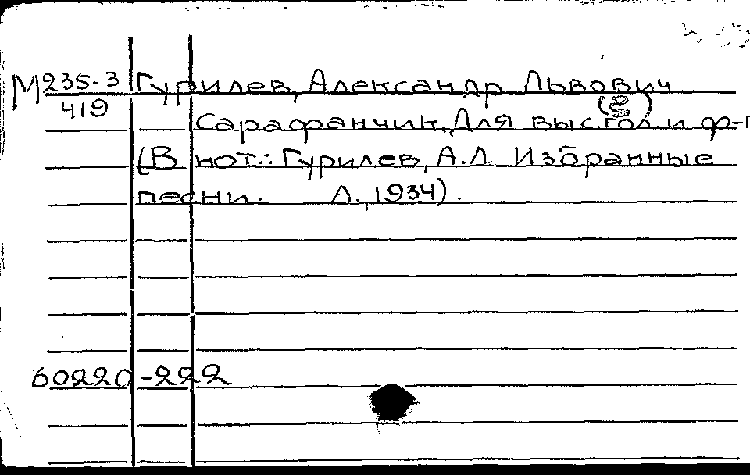 М 235-3 Гурилев, Александр Львович
419
Сарафанчик. Для выс. гол. и ф-п
(В нот.: Гурилев, А.Л. Избранные
песни. Л., 1934).
60220-222